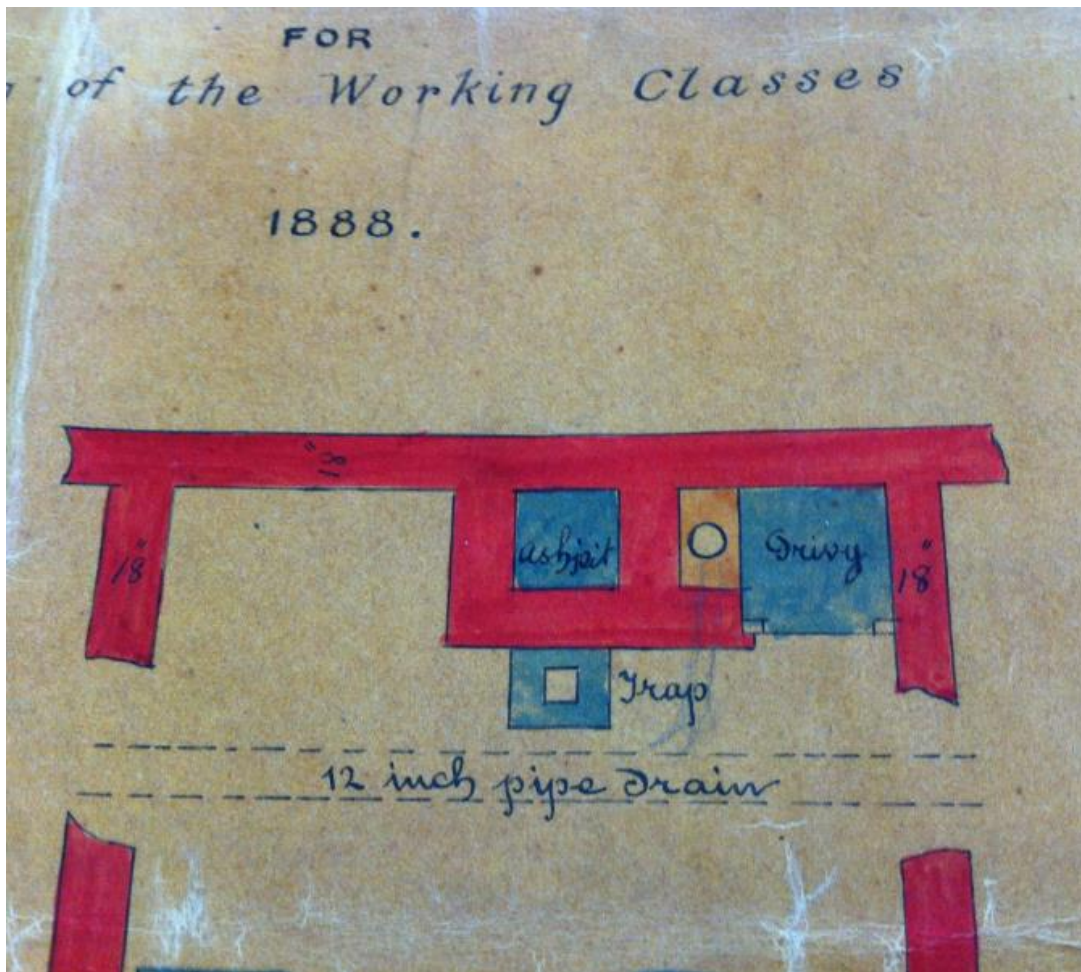 FOR
of the Working Classes
1888.
18"
18"
ashpit
Privy
18"
Trap
12 inch pipe Drain